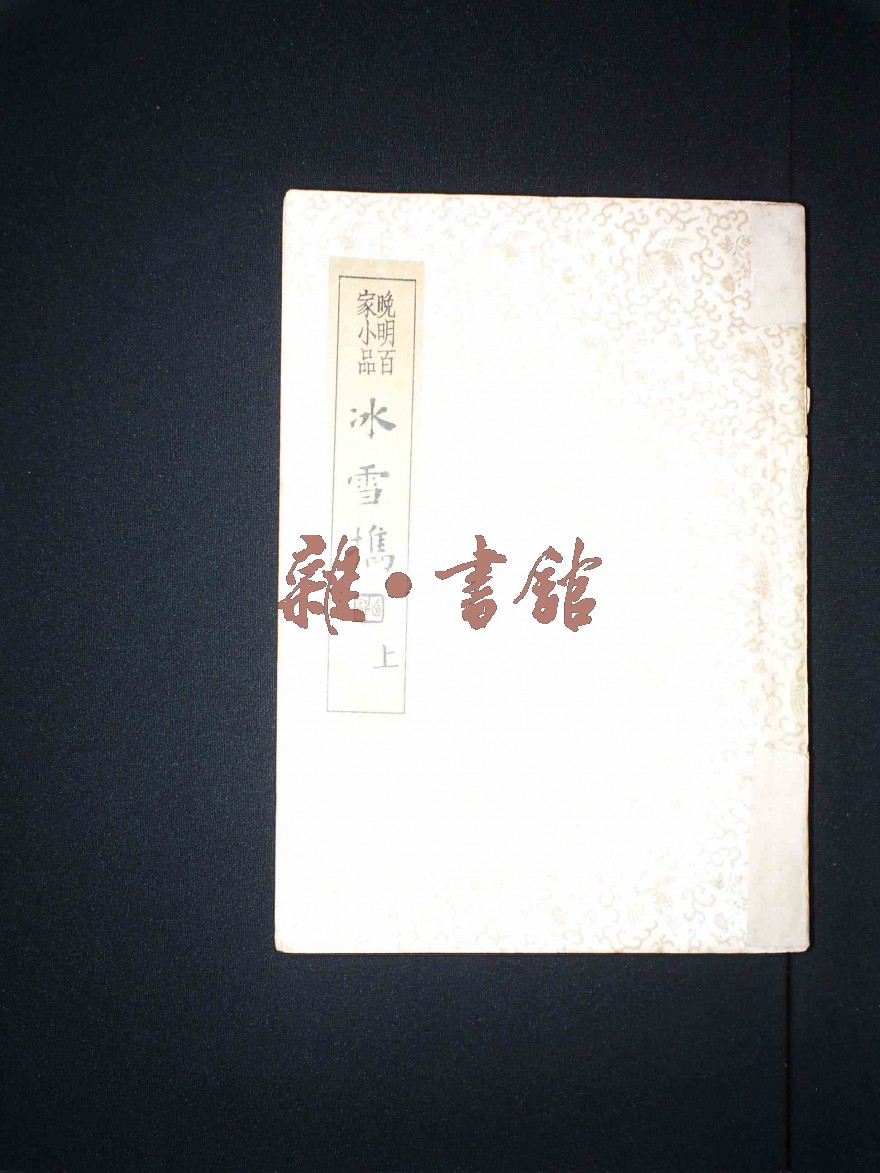 晚明百
家小品
冰雪攜
上
雜·書館